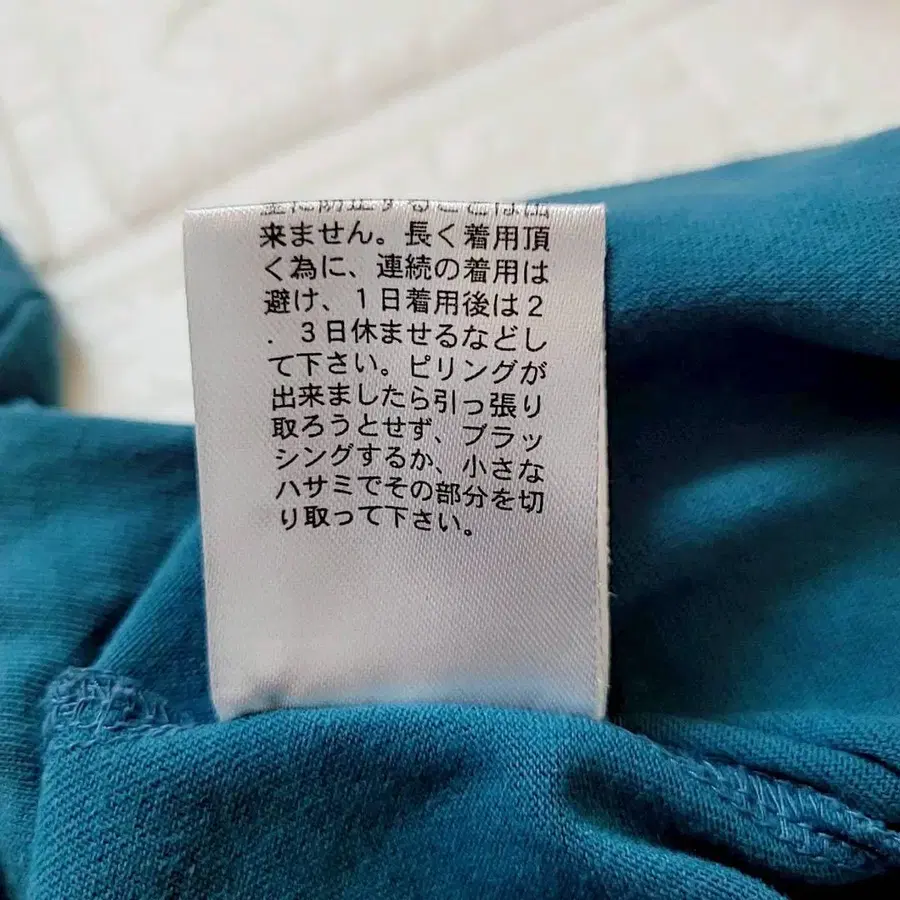 に防止することは出
来ません。長く着用頂
く為に、連続の着用は
避け、1日着用後は2
．3日休ませるなどし
て下さい。ピリングが
出来ましたら引っ張り
取ろうとせず、ブラッ
シングするか、小さな
ハサミでその部分を切
り取って下さい。